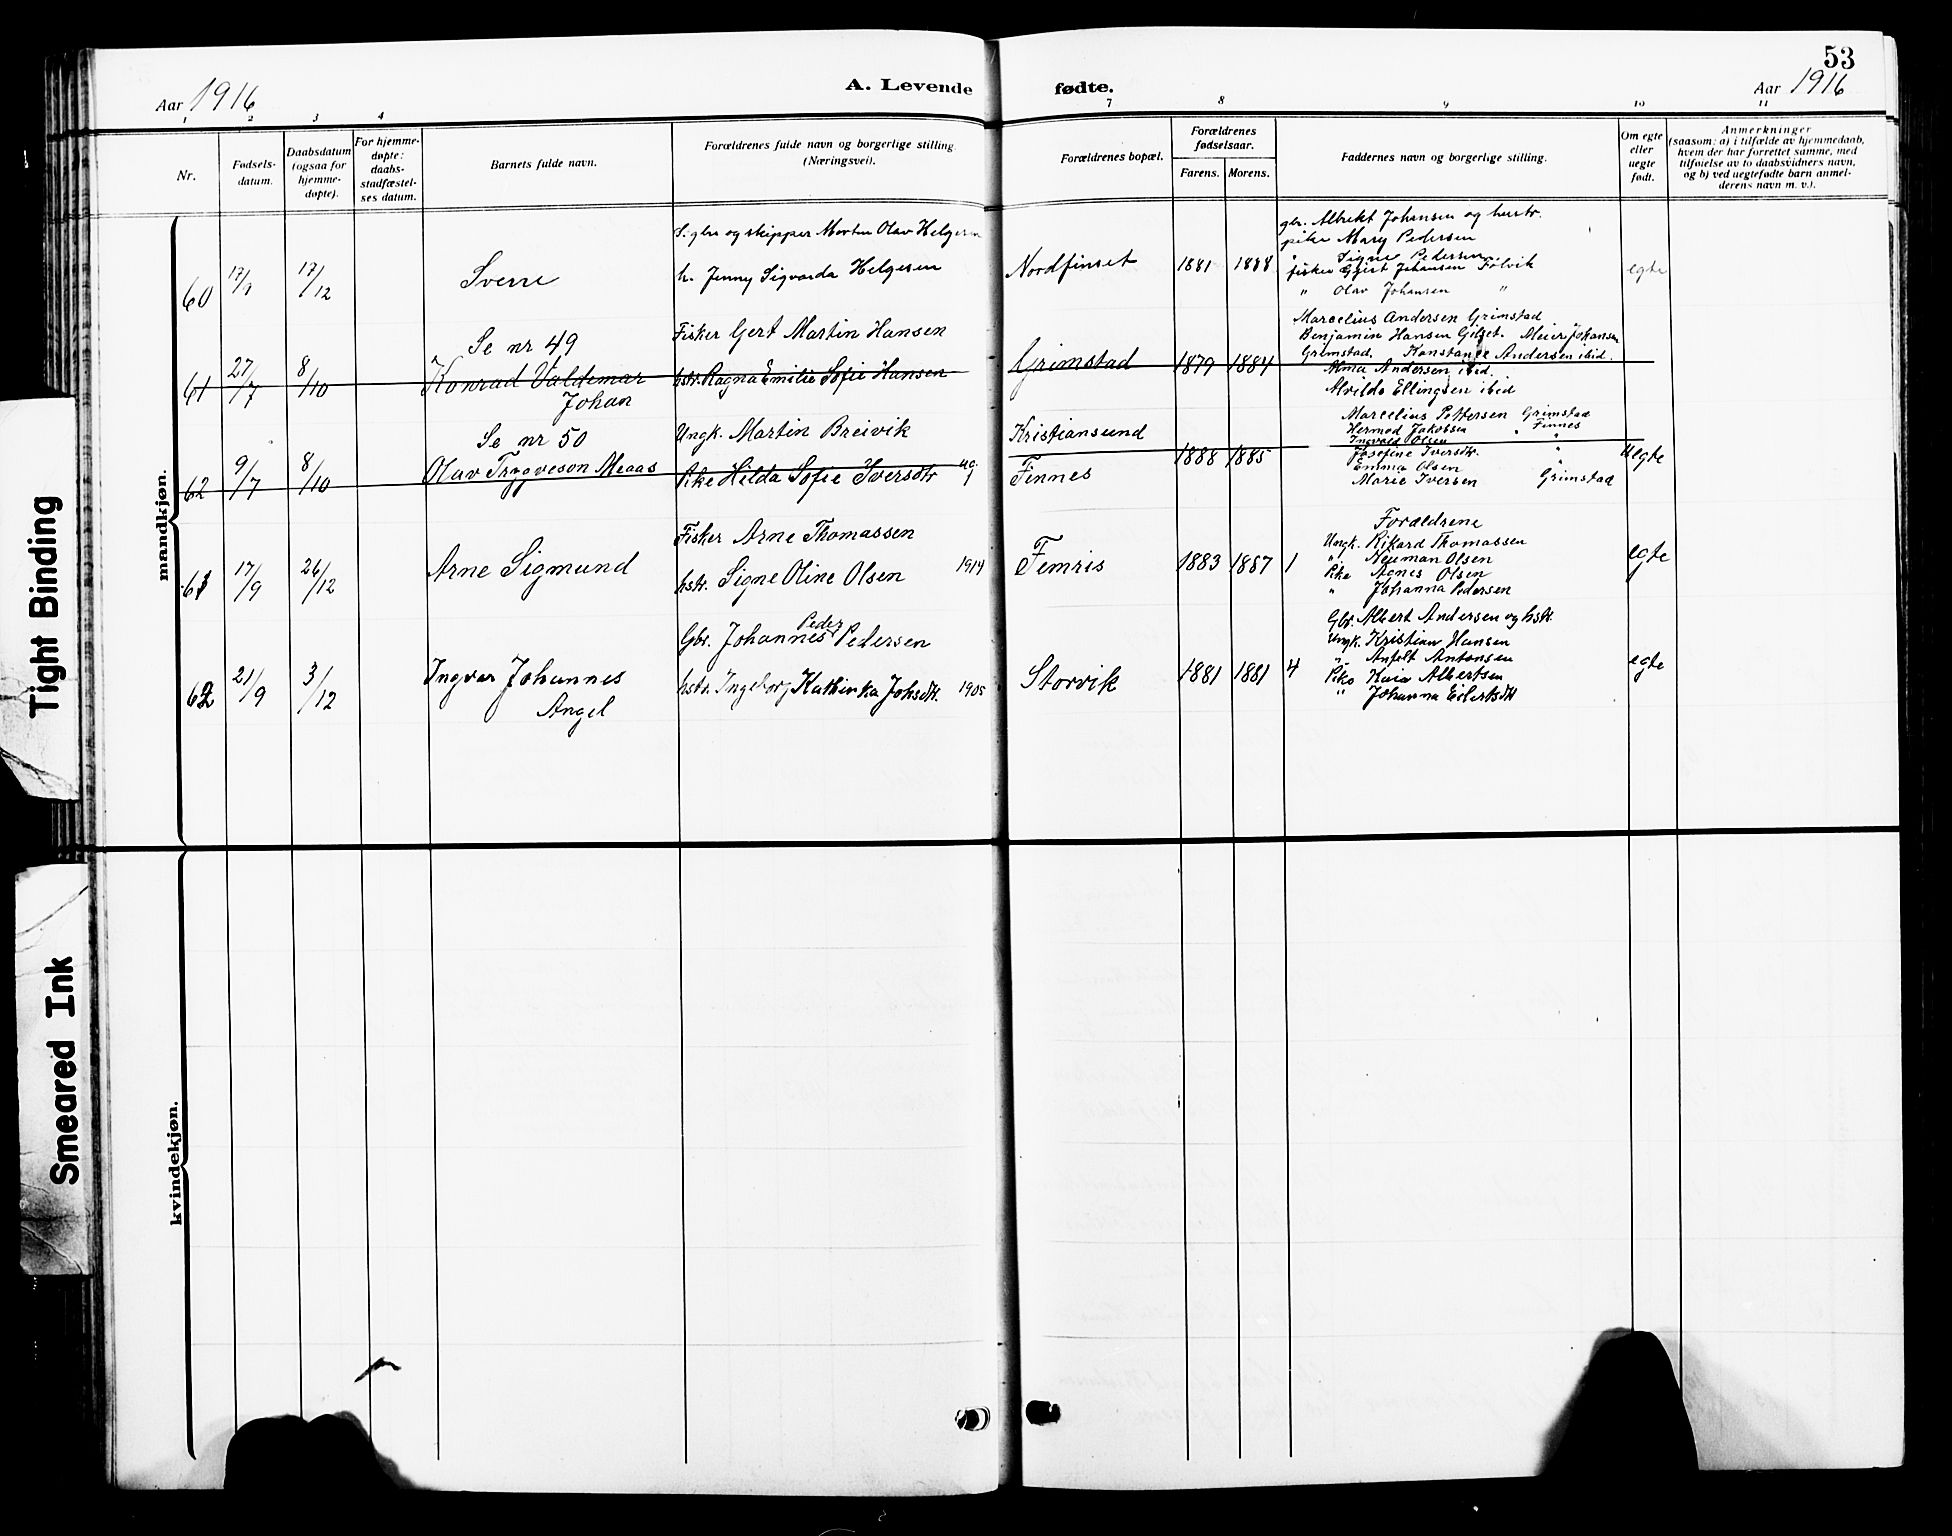 53
Aar 1916
A. Levende fødte.
Aar 1916
1 2 3 4 7 8 9 10 11
Nr.
Fødsels-
datum.
Daabsdatum
(ogsaa for
hjemme-
døpte).
For hjemme-
døpte:
daabs-
stadfæstel-
ses datum.
Barnets fulde navn.
Forældrenes fulde navn og borgerlige stilling.
(Næringsvei).
Forældrenes bopæl.
Forældrenes
fødselsaar.
Farens. Morens.
Faddernes navn og borgerlige stilling.
Om egte
eller
uegte
født.
Anmerkninger
(saasom: a) i tilfælde av hjemmedaab,
hvem der har forrettet samme, med
tilføielse av to daabsvidners navn,
og b) ved uegtefødte barn anmel-
derens navn m. v.).
mandkjøn.
og skipper Morten Olav Helgesen
60 17/12 Sverre
h. Jenny Sigvarda Helgesen
Nordfinset 1881 1888
gbr. Albrikt Johansen og hustr.
pike Mary Pedersen
" Signe Pedersen
fisker Johansen Folvik
" Olav Johansen "
egte
Se nr 49
Fisker Gert Martin Hansen
61 27/7 8/10 Konrad Valdemar
Johan
hstr. Ragna Emilie Sofie Hansen
Grimstad 1879 1884
Marcelius Andersen Grimstad
Benjamin Hansen Gilset. Meier Johansen
Grimstad. Konstance Andersen ibid.
Alma Andersen ibid.
Alvilde Ellingsen ibid
Se nr 50
Ungk. Martin Breivik
62 9/7 8/10 Olav Trygveson Meaas
Pike Hilda Sofie Iversdtr ug.
Kristiansund
Finnes
1888 1885
Marcelius Pettersen Grimstad
Hermod Jakobsen " Finnes
Ingvald Olsen "
Josefine Iversdtr. "
Emma Olsen
Marie Iversen Grimstad
Uegte
Fisker Arne Thomassen
61 17/9 26/12 Arne Sigmund
hstr. Signe Oline Olsen 1914
Femris 1883 1887 1
Forældrene
Ungk. Rikard Thomassen
" Neuman Olsen
Pike Agnes Olsen
" Johanna Pedersen
egte
Gbr. Johannes Peder Pedersen
62 21/9 3/12 Ingvar Johannes
Angel
hstr. Ingeborg Kathinka Johsdtr. 1905
Storvik 1881 1881 4
Gbr. Albert Andersen og hstr.
Ungk. Kristian Hansen
" Antonsen
Pike Albertsen
" Johanna Eilertsdtr
egte
kvindekjøn.
Tight Binding
Smeared Ink